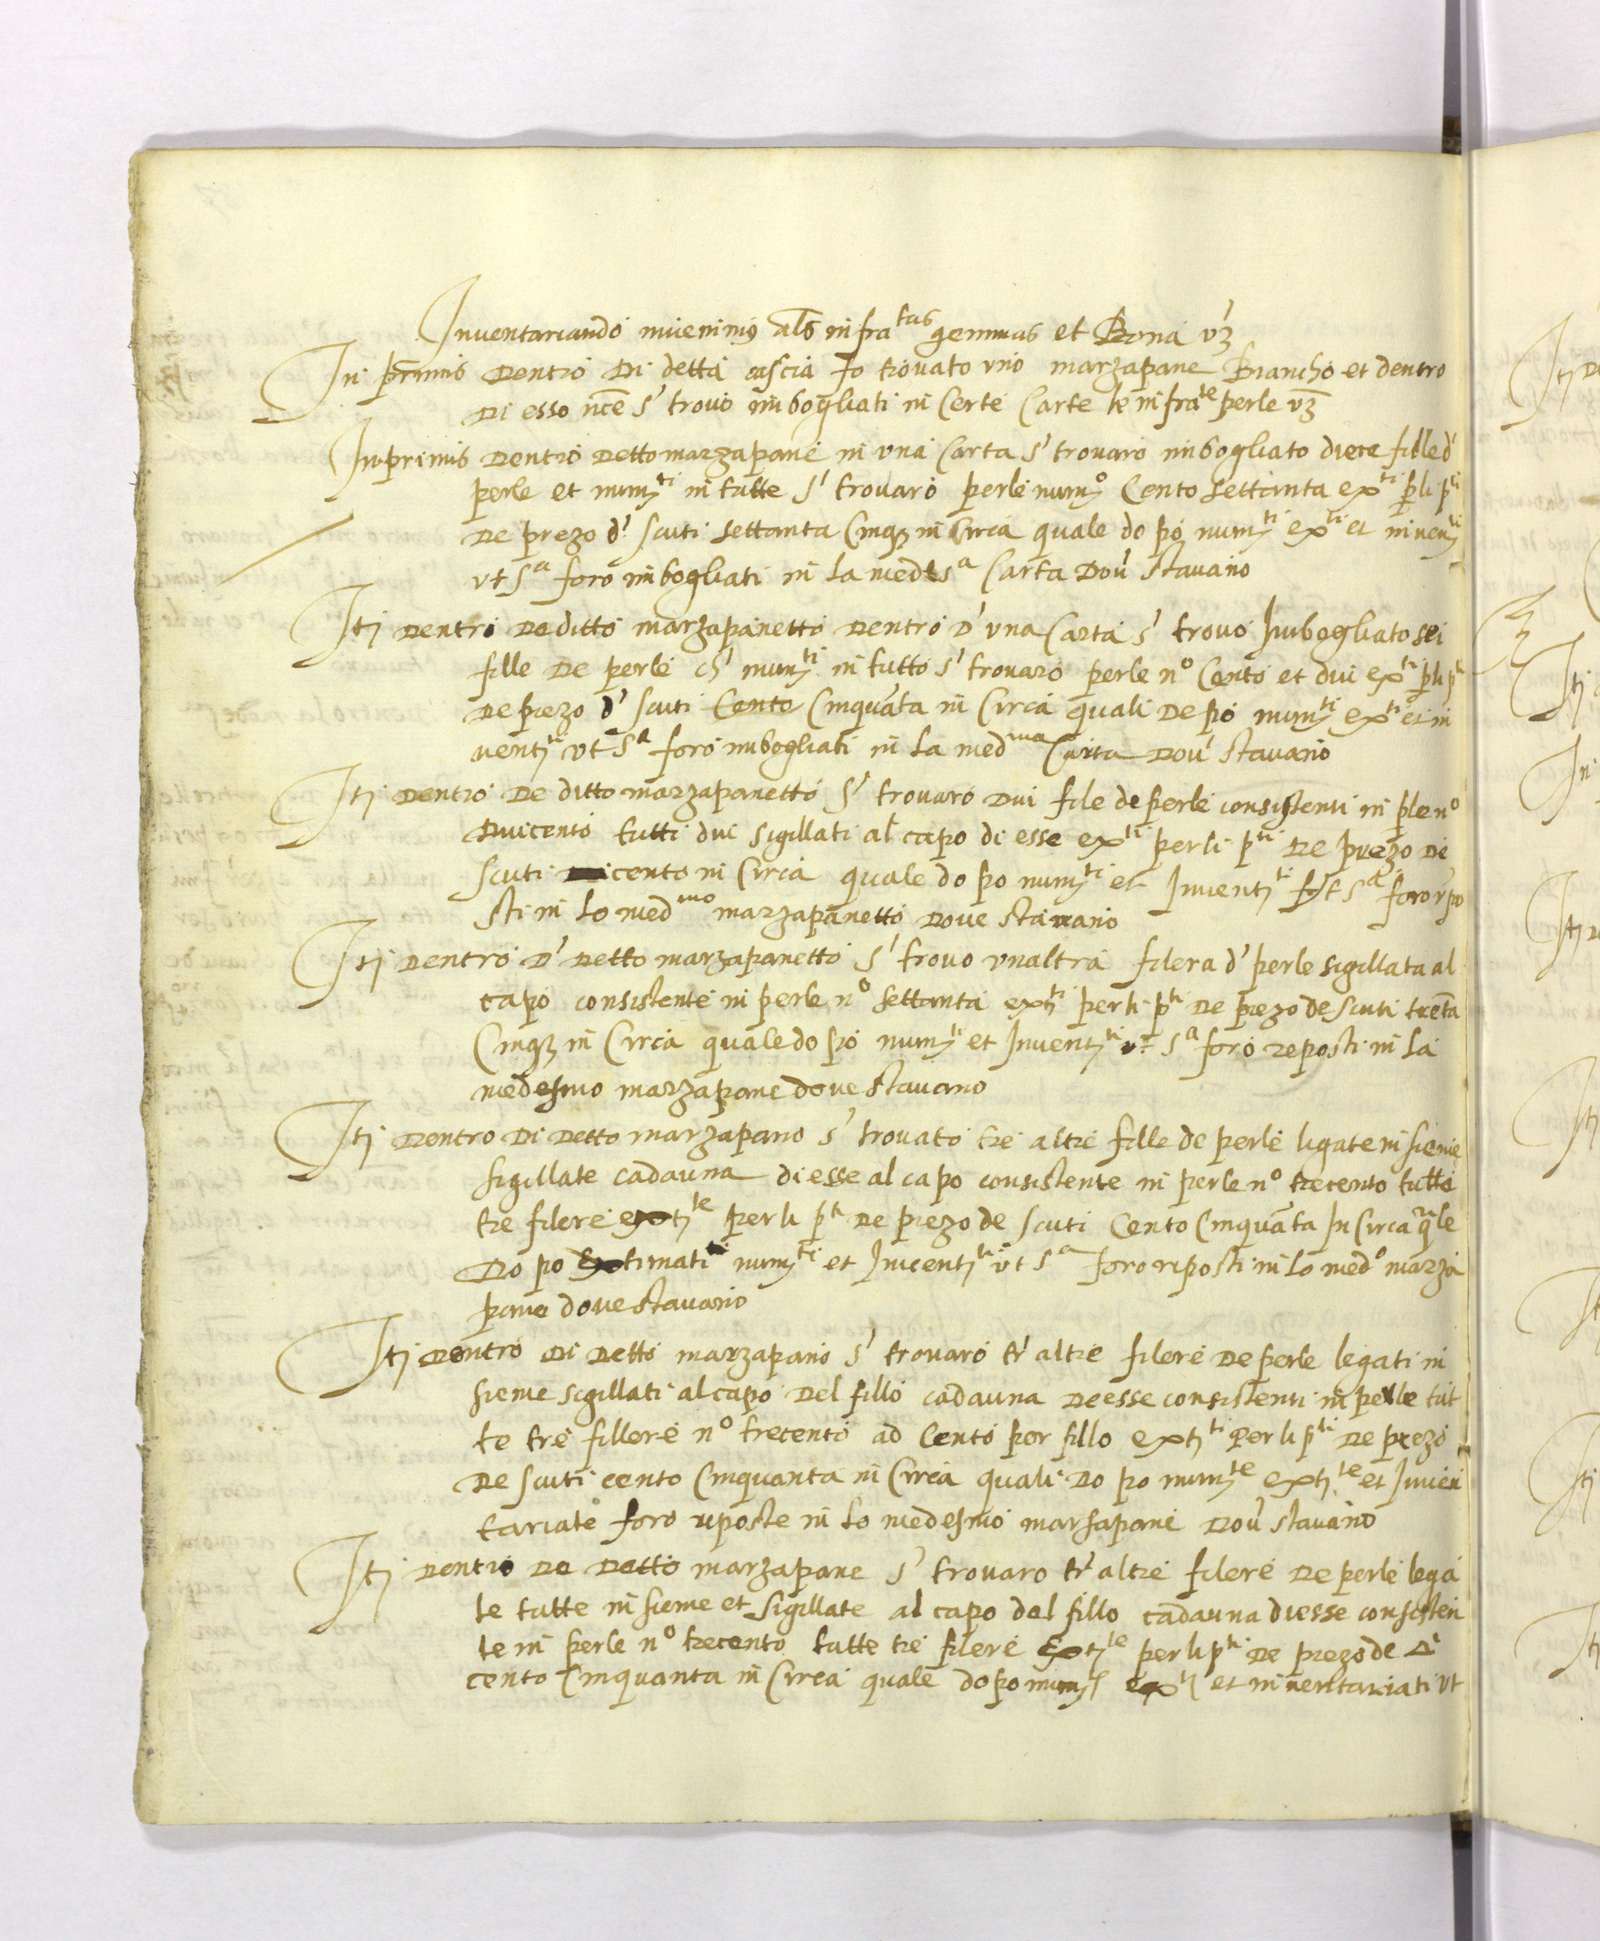 Inventariando invenimus als infra^tas gemmas et Bona vz
In primis Dentro Di detta cascia fo trovato uno marzapane Biancho et dentro
Di esso nce s' trovò imbogliati in Certe Carte le infra^te perle vz
Inprimis Dentro Detto marzapane in una Carta s' trovaro imbogliato diece fille d'
perle et num^ti in tutte s' trovaro perle num^o Cento settanta ex^ti p li p^ti
De prezo d' scuti settanta Cinq in Circa quale do po num^ti ex^ti et invent^ti
ut s^a foro imbogliati in la medes^a Carta Dov' stavano
Itj Dentro De ditto marzapanetto Dentro D' una Carta s' trovò Imbogliato sei
fille De perle ch' num^ti in tutto s' trovaro perle n^o Cento et dui ex^ti p li p^ti
De prezo d' scuti Cento Cinquāta in Circa quali De po num^ti ex^ti et in
vent^ti ut s^a foro imbogliati in la med^ma Carta Dov' stavano
Itj Dentro De ditto marzapanetto s' trovaro Dui file de perle consistenti in ple n^o
Duicento tutti dui sigillati al capo di esse ex^ti per li p^ti De prezo De
scuti cento in Circa quale do po num^ti et Invent^ti ut s^a foro rpo
sti in lo med^mo marzapanetto Dove stavano
Itj Dentro D' Detto marzapanetto s' trovo unaltra filera d' perle sigillata al
capo consistente in perle n^o settanta ext^ti per li p^ti De prezo de scuti trēta
Cinq in Circa quale do po num^ti et Invent^ti ut s^a foro reposti in la
medesmo marzapane dove stavano
Itj Dentro Di Detto marzapano s' trovato tre altre fille de perle ligate in sieme
sigillate cadauna di esse al capo consistente in perle n^o trecento tutte
tre filere ext^te per li p^ti De prezo de scuti Cento Cinquāta In Circa qle
Do po Extimati num^ti et Invent^ti ut s^a foro riposti in lo med^o marza
pane dove stavano
Itj Dentro Di Detto marzapano s' trovaro tr' altre filere De perle legati in
sieme sigillati al capo Del fillo cadauna De esse consistenti in perle tut
te tre fillere n^o trecento ad Cento per fillo ext^ti Per li p^ti De prezo
De scuti cento Cinquanta in Circa quali Do po num^te ext^te et Inven
tariate foro riposte in lo medesmo marsapane Dov' stavano
Itj Dentro De Detto marzapane s' trovaro tr' altre filere De perle lega
te tutte in sieme et sigillate al capo del fillo cadauna di esse consisten
te in perle n^o trecento tutte tre filere Ext^te per li p^ti De prezo de Δi
cento Cinquanta in Circa quale do po num^ti ex^ti et inventariati ut